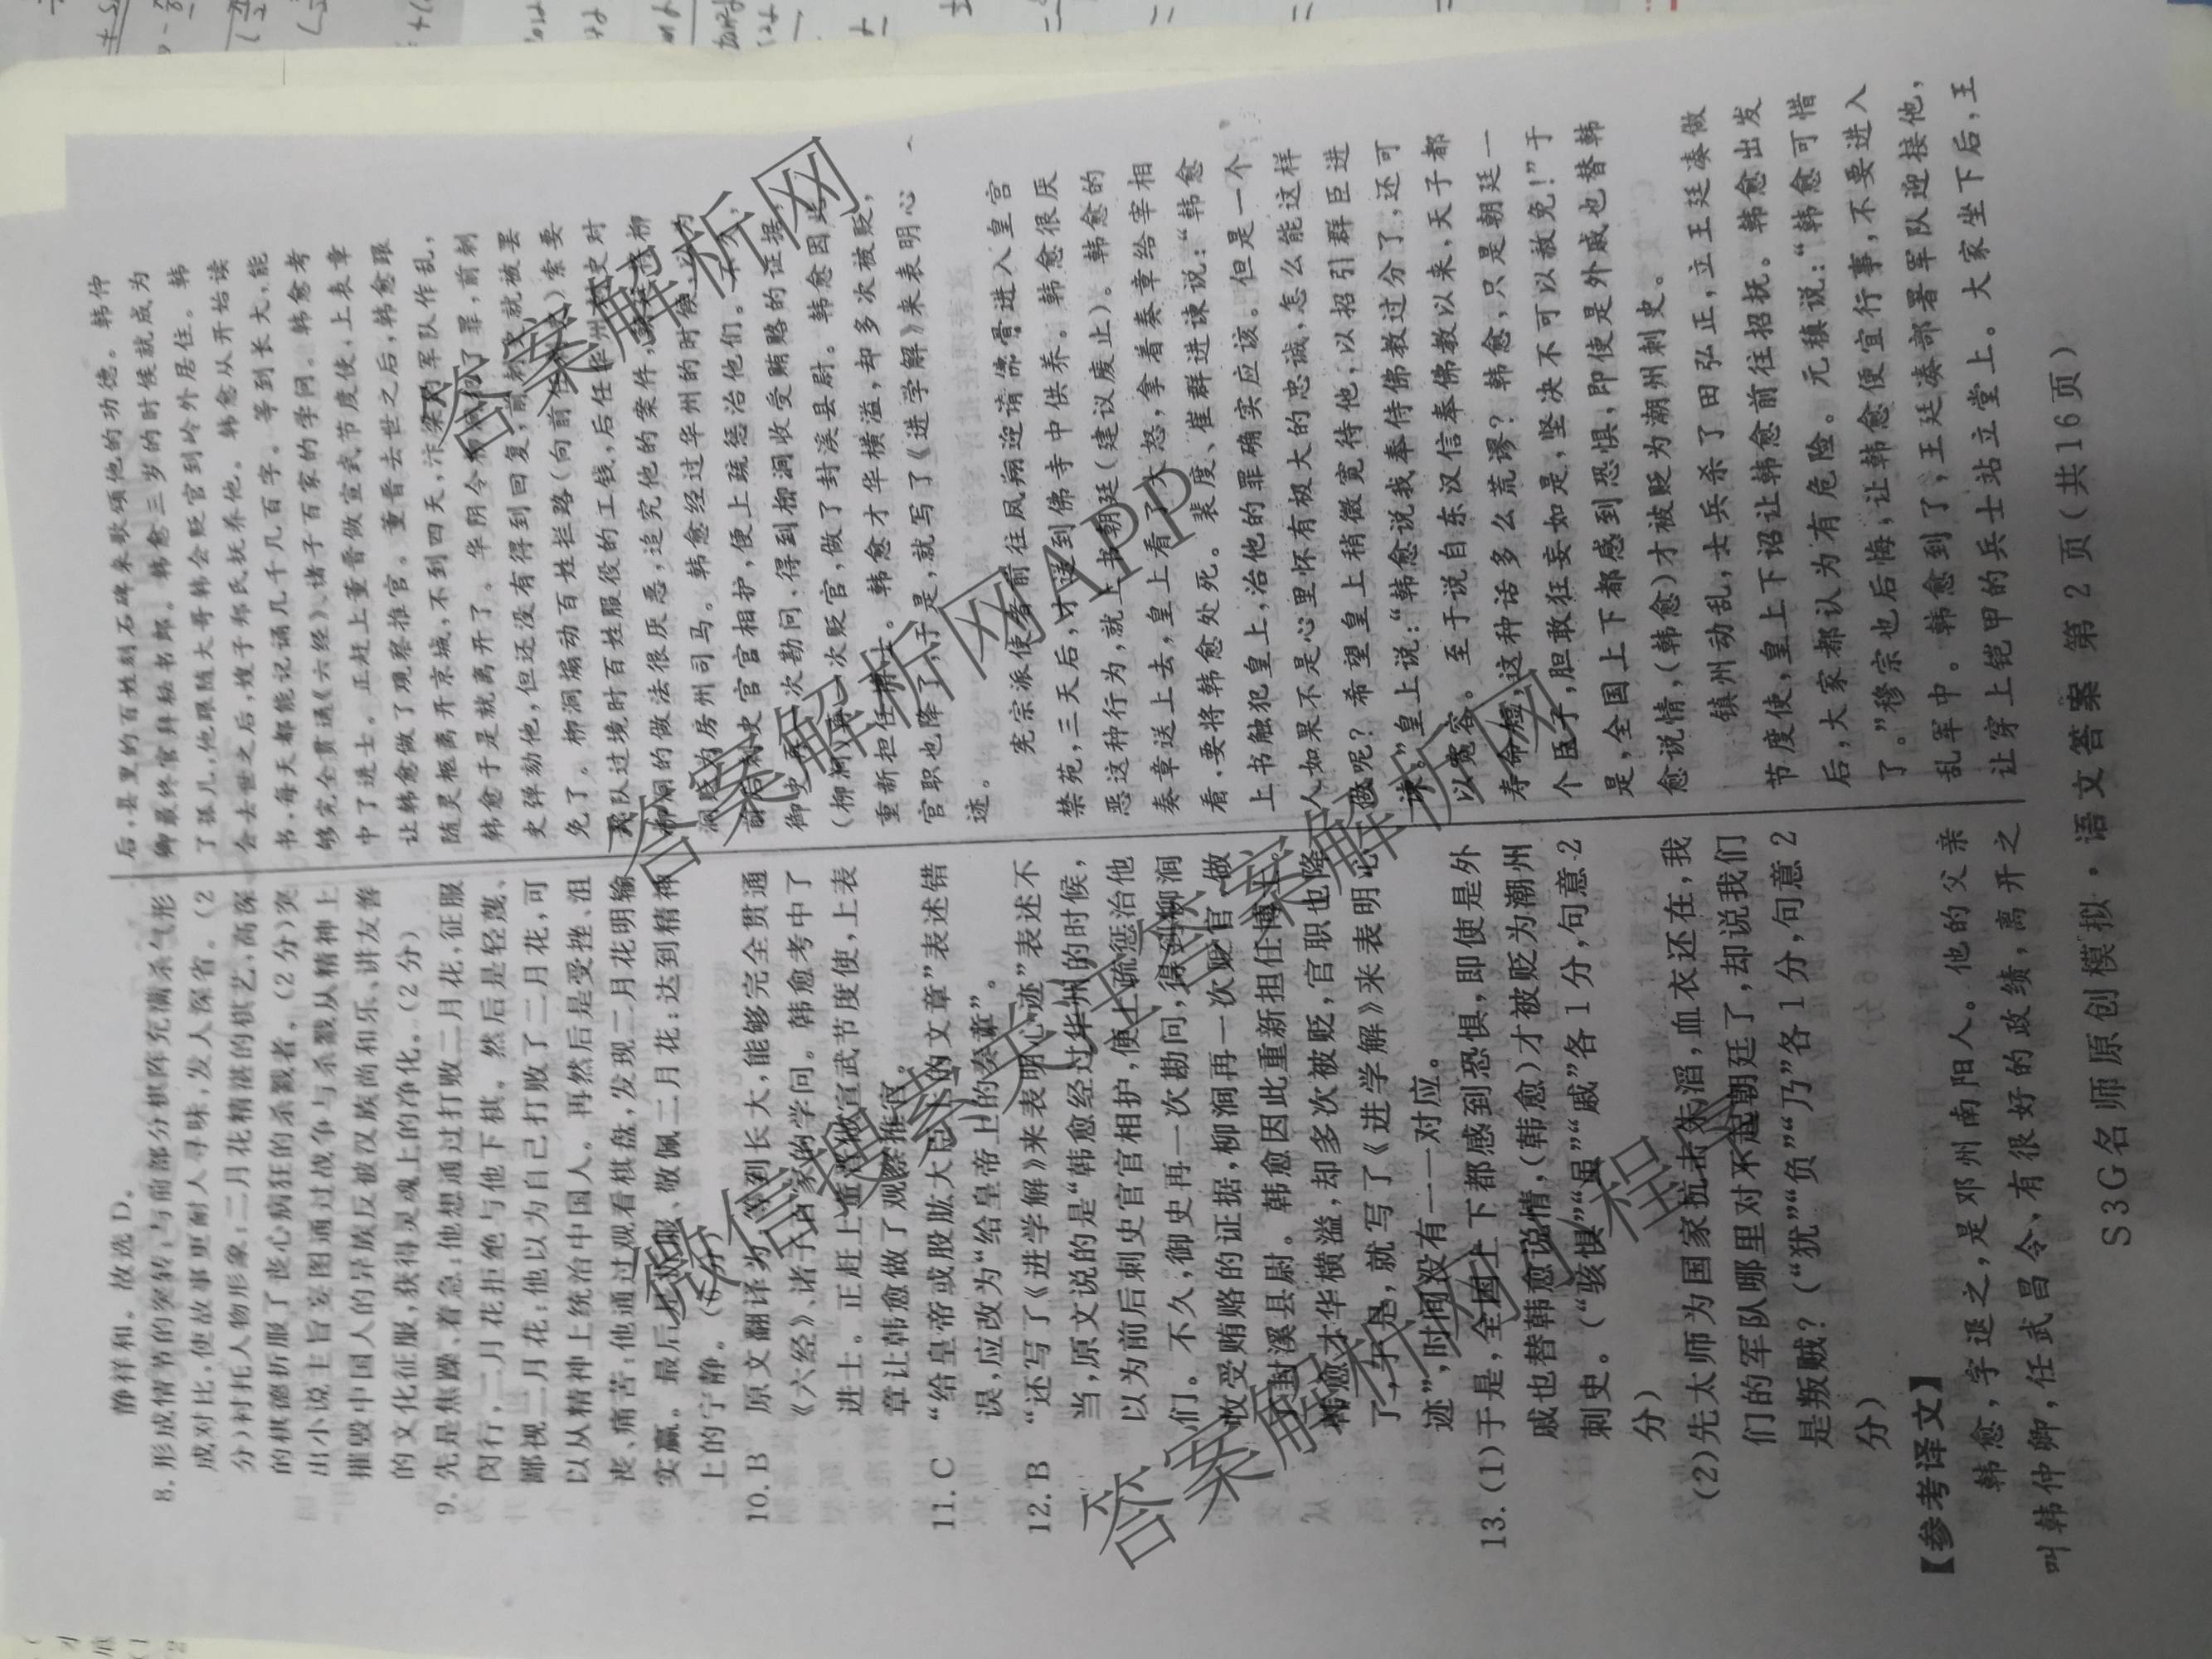 静祥和。故选D。
8.形成情节的突转;与前部分棋阵充满杀气形
成对比,使故事更耐人寻味,发人深省。(2
分)衬托人物形象:二月花精湛的棋艺、高深
的棋德折服了丧心病狂的杀戮者。(2分)突
出小说主旨:妄图通过战争与杀戮从精神上
摧毁中国人的异族反被汉族尚和乐、讲友善
的文化征服,获得灵魂上的净化。(2分)
9.先是焦躁、着急:他想通过打败二月花,征服
闵行,二月花拒绝与他下棋。然后是轻蔑、
鄙视二月花:他以为自己打败了二月花,可
以从精神上统治中国人。再然后是受挫、沮
丧、痛苦:他通过观看棋盘,发现二月花明输
实赢。最后是佩服、敬佩二月花:达到精神
上的宁静。(6分)
10.B 原文翻译为:等到长大,能够完全贯通
《六经》、诸子百家的学问。韩愈考中了
进士。正赶上董晋做宣武节度使,上表
章让韩愈做了观察推官。
11.C “给皇帝或股肱大臣的文章”表述错
误,应改为“给皇帝上的奏章”。
12.B “还写了《进学解》来表明心迹”表述不
当,原文说的是“韩愈经过华州的时候,
以为前后刺史官官相护,便上疏惩治他
们。不久,御史再一次勘问,得到柳涧
收受贿赂的证据,柳涧再一次贬官,做
了封溪县尉。韩愈因此重新担任博士。
韩愈才华横溢,却多次被贬,官职也降
了,于是,就写了《进学解》来表明心
迹”,时间没有一一对应。
13.(1)于是,全国上下都感到恐惧,即使是外
戚也替韩愈说情,(韩愈)才被贬为潮州
刺史。(“骇惧”“虽”“戚”各1分,句意2
分)
(2)先太师为国家抗击朱滔,血衣还在,我
们的军队哪里对不起朝廷了,却说我们
是叛贼?(“犹”“负”“乃”各1分,句意2
分)
【参考译文】
韩愈,字退之,是邓州南阳人。他的父亲
叫韩仲卿,任武昌令,有很好的政绩,离开之
后,县里的百姓刻石碑来歌颂他的功德。韩仲
卿最终官拜秘书郎。韩愈三岁的时候就成为
了孤儿,他跟随大哥韩会贬官到岭外居住。韩
会去世之后,嫂子郑氏抚养他。韩愈从开始读
书,每天都能记诵几千几百字。等到长大,能
够完全贯通《六经》、诸子百家的学问。韩愈考
中了进士。正赶上董晋做宣武节度使,上表章
让韩愈做了观察推官。董晋去世之后,韩愈跟
随灵柩离开京城,不到四天,汴梁的军队作乱,
韩愈于是就离开了。华阴令柳涧犯了罪,前刺
史弹劾他,但还没有得到回复,前刺史就被罢
免了。柳涧煽动百姓拦路(向前任刺史)索要
军队过境时百姓服役的工钱,后任华州刺史对
柳涧的做法很厌恶,追究他的案件,
涧贬为房州司马。韩愈经过华州的时候,以为
前后刺史官官相护,便上疏惩治他们。不久,
御史再一次勘问,得到柳涧收受贿赂的证据,
(柳涧)再一次贬官,做了封溪县尉。韩愈因此
重新担任博士。韩愈才华横溢,却多次被贬,
官职也降了,于是,就写了《进学解》来表明心
迹。
宪宗派使者前往凤翔迎请佛骨进入皇宫
禁苑,三天后,才送到佛寺中供养。韩愈很厌
恶这种行为,就上书朝廷(建议废止)。韩愈的
奏章送上去,皇上看了大怒,拿着奏章给宰相
看,要将韩愈处死。裴度、崔群进谏说:“韩愈
上书触犯皇上,治他的罪确实应该。但是一个
人如果不是心里怀有极大的忠诚,怎么能这样
做呢?希望皇上稍微宽待他,以招引群臣进
谏。”皇上说:“韩愈说我奉侍佛教过分了,还可
以宽容。至于说自东汉信奉佛教以来,天子都
寿命短,这种话多么荒谬?韩愈,只是朝廷一
个臣子,胆敢狂妄如是,坚决不可以赦免!”于
是,全国上下都感到恐惧,即使是外戚也替韩
愈说情,(韩愈)才被贬为潮州刺史。
镇州动乱,士兵杀了田弘正,立王廷凑做
节度使,皇上下诏让韩愈前往招抚。韩愈出发
后,大家都认为有危险。元稹说:“韩愈可惜
了。”穆宗也后悔,让韩愈便宜行事,不要进入
乱军中。韩愈到了,王廷凑部署军队迎接他,
让穿上铠甲的兵士站立堂上。大家坐下后,王
S3G名师原创模拟·语文答案 第2页(共16页)
答案解析网
答案解析网APP